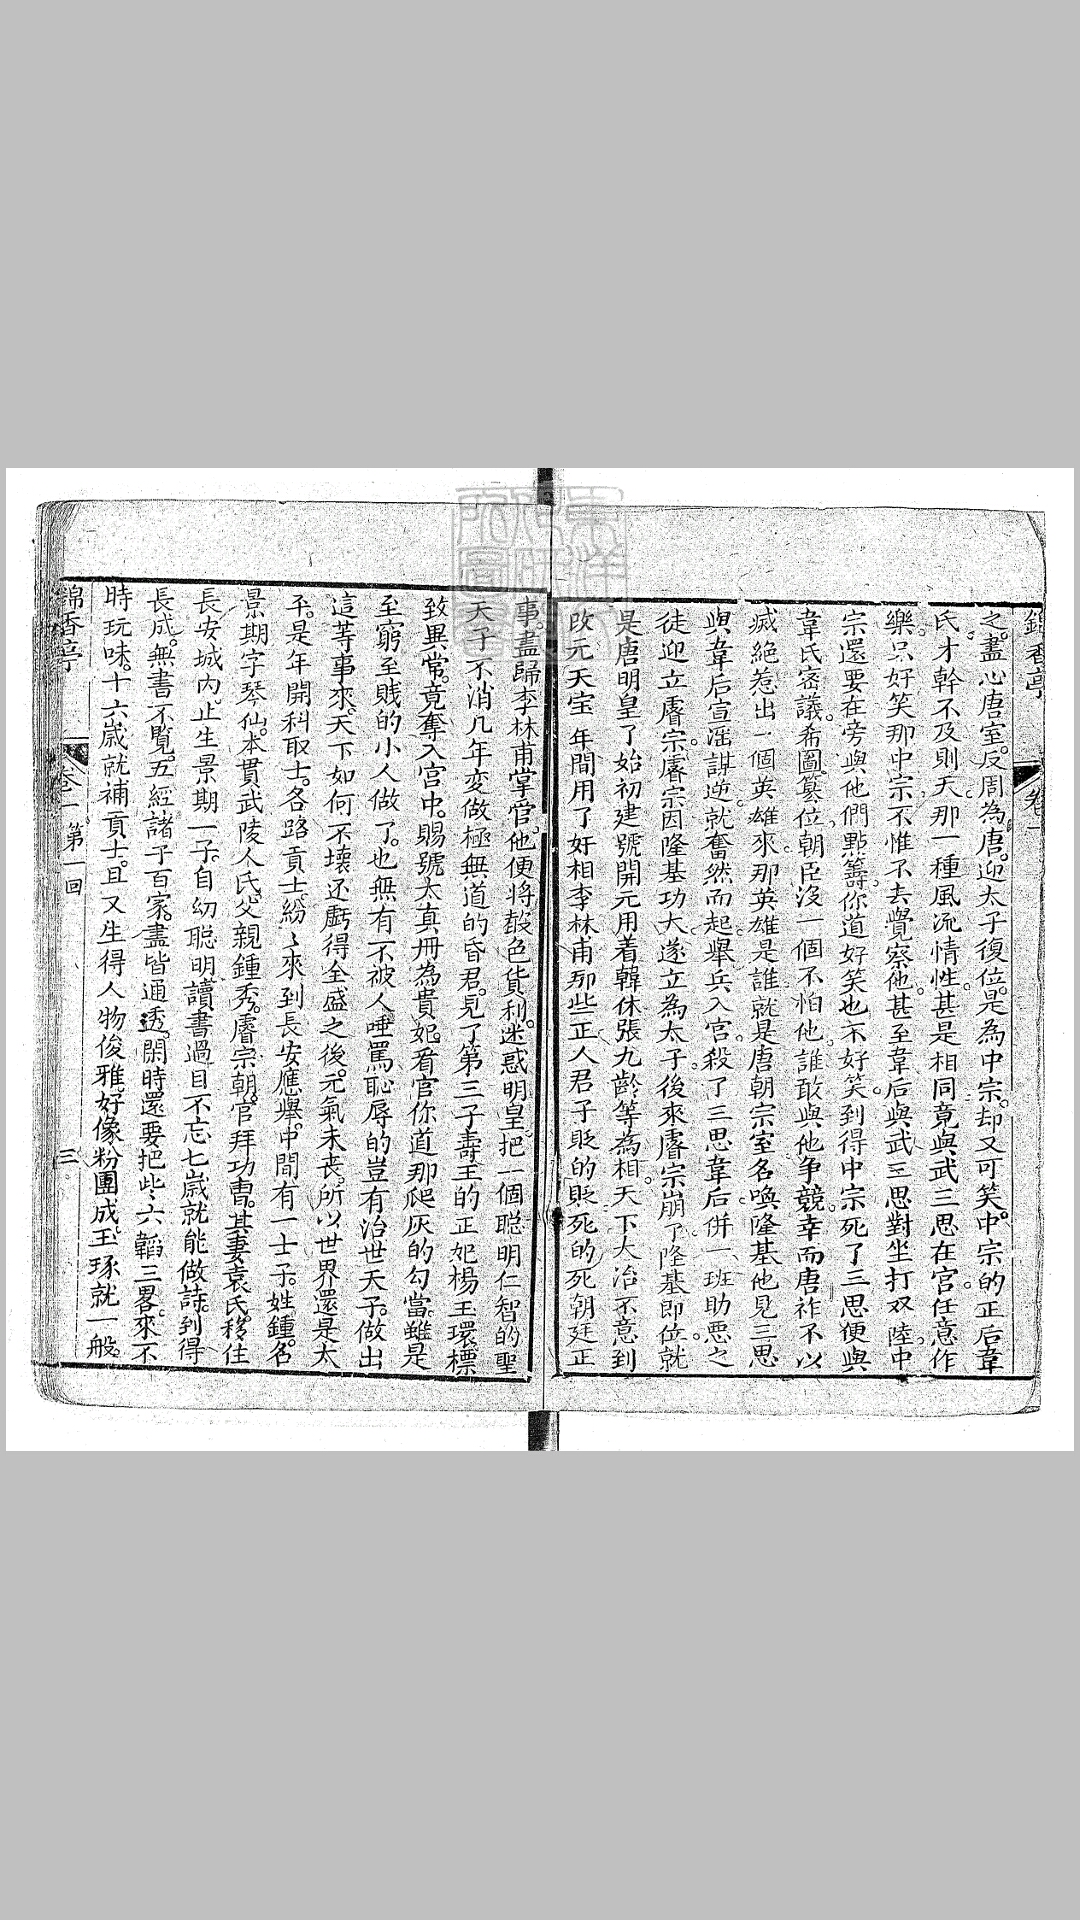 錦香亭　卷一
之。盡心唐室。反周為唐。迎太子復位。是為中宗。却又可笑。中宗的正后韋
氏才幹不及則天那一種風流情性。甚是相同竟與武三思在宮任意作
樂。只好笑那中宗。不惟不去覺察他。甚至韋后與武三思對坐打双陸。中
宗還要在旁與他們點籌。你道好笑也不好笑。到得中宗死了三思便與
韋氏密議。希圖篡位。朝臣沒一個不怕他。誰敢與他爭競。幸而唐祚不以
滅絕惹出一個英雄來。那英雄是誰就是唐朝宗室名喚隆基。他見三思
與韋后宣滛謀逆。就奮然而起。舉兵入宮。殺了三思韋后併一班助惡之
徒迎立睿宗。睿宗因隆基功大遂立為太子。後來睿宗崩了。隆基即位。就
是唐明皇了。始初建號開元用着韓休張九齡等為相。天下大治不意到
改元天宝年間用了奸相李林甫那些正人君子貶的貶死的死朝廷正
事。盡歸李林甫掌管。他便將聲色貨利。迷惑明皇。把一個聪明仁智的聖
天子不消几年変做極無道的昏君。見了第三子壽王的正妃楊玉環標
致異常。竟奪入宫中。賜號太真冊為貴妃。看官你道那爬灰的勾當。雖是
至窮至賎的小人做了。也無有一不被人唾罵恥辱的豈有治世天子。做出
這等事來。天下如何不壞还虧得全盛之後。元氣未丧。所以世界還是太
平。是年開科取士。各路貢士紛〻來到長安應舉。中間有一士子。姓鍾。名
景期字琴仙。本貫武陵人氏。父親鍾秀。睿宗朝。官拜功曹。其妻袁氏。移住
長安城内。止生景期一子。自幼聪明。讀書過目不忘七歲就能做詩。到得
長成。無書不覧。五經諸子百家。盡皆通透。閒時還要把些六韜三畧。來不
時玩味。十六歲就補貢士。且又生得人物俊雅。好像粉團成。玉琢就一般。
錦香亭　卷一　第一回　三